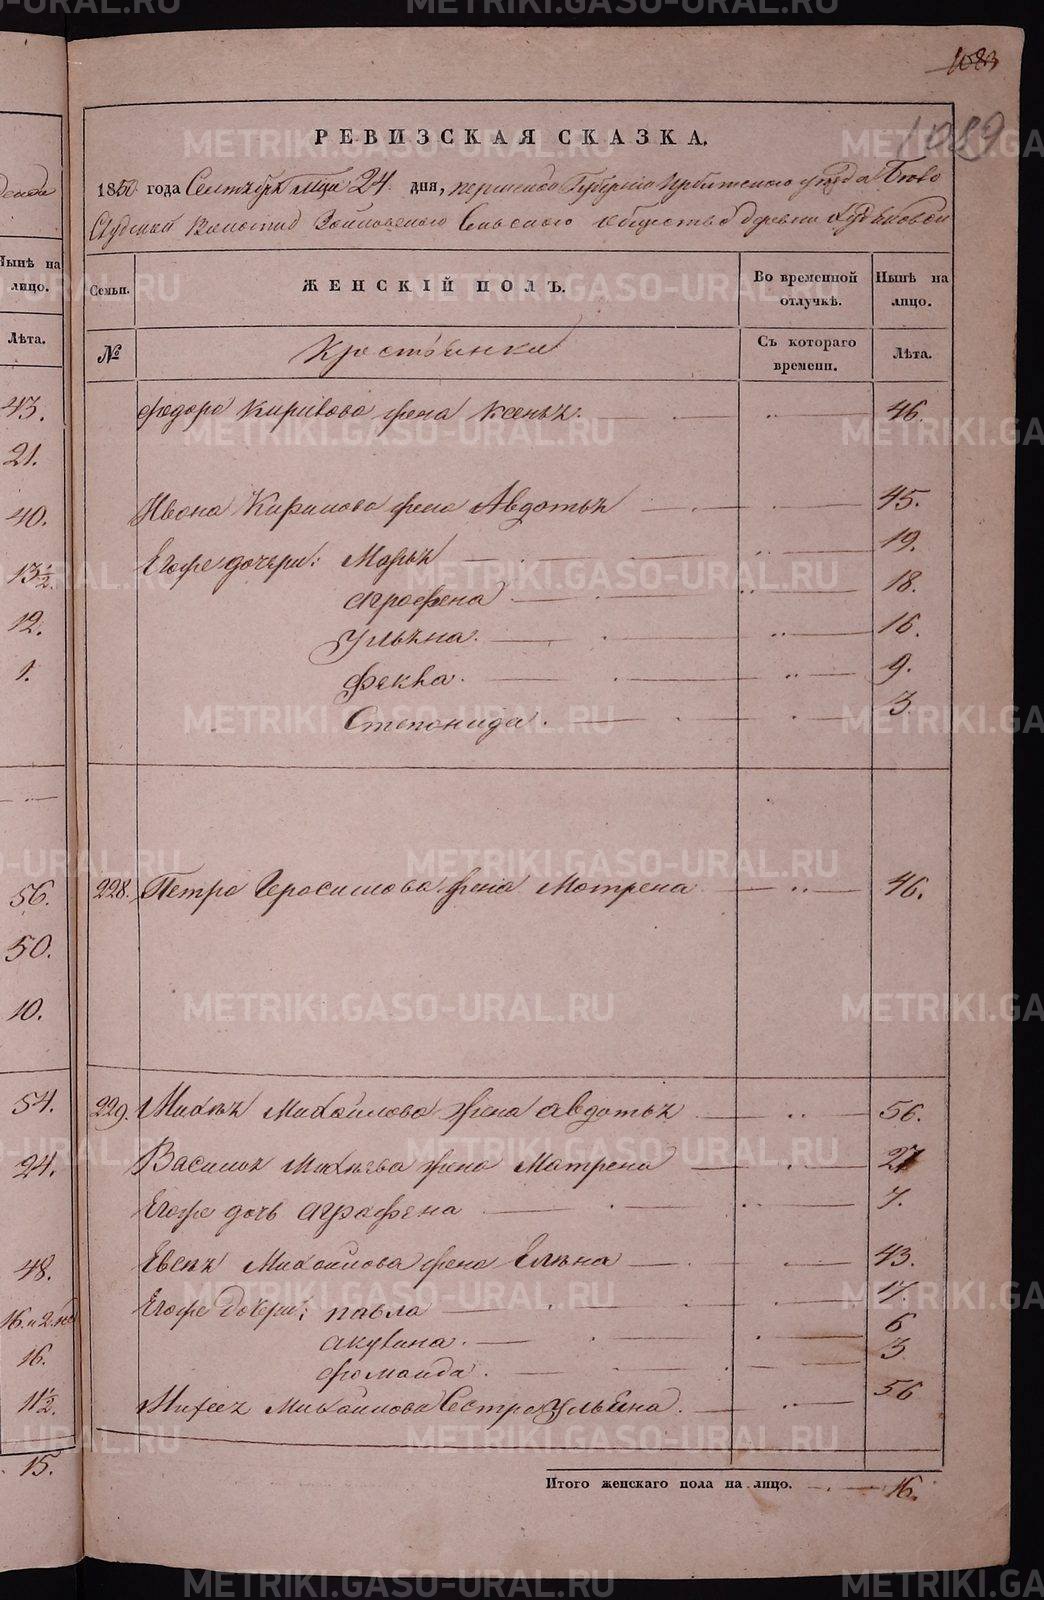 1083
1089
РЕВИЗСКАЯ СКАЗКА.
1850 года Сентября м-ца 24 дня, пермской Губернии Ирбитского уезда Бело
Слудской Волости Сельского общества деревни
Семьи. ЖЕНСКІЙ ПОЛЪ. Во временной отлучкѣ. Нынѣ на лицо.
№ Крестьянки Съ котораго времени. Лѣта.
Федора Кирилова жена Ксенья 46.
Ивана Кирилова жена Авдотья 45.
Его же дочери: Марья 19.
Аграфена 18.
Ульяна. 16.
Фекла. 9.
Степонида. 3
228. Петра Герасимова жена Мотрена 46.
229. Михея Михайлова жена Авдотья 56.
Василья Михеева жена Матрена 27
Его же дочь Аграфена 7.
Евсея Михайлова жена Елена 43.
Его же дочери: павла 17.
акулина. 6
фомаида. 3
Михайлова Сестра Ульяна. 56
Итого женскаго пола на лицо. 16.
Нынѣ на лицо.
Лѣта.
43.
21.
40.
13½.
12.
1.
56.
50.
10.
54.
24.
48.
16.
11½.
15.
METRIKI.GASO-URAL.RU